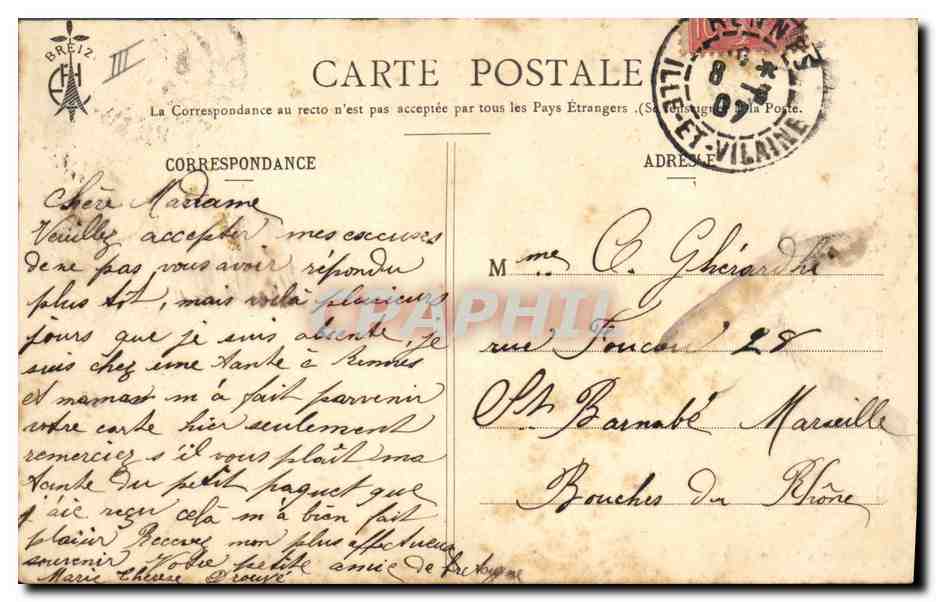 BREIZ
III
CARTE POSTALE
La Correspondance au recto n'est pas acceptée par tous les Pays Étrangers. (Se renseigner à la Poste.
RENNES
8
07
ILLE-ET-VILAINE
CORRESPONDANCE
Chère Madame
Veuillez accepter mes excuses
de ne pas vous avoir répondu
plus tôt, mais voilà plusieurs
jours que je suis absente, je
suis chez une tante à Rennes
et maman m'a fait parvenir
votre carte hier seulement
remerciez s'il vous plaît ma
tante du petit paquet que
j'aie reçu celà m'a bien fait
plaisir Recevez mon plus affectueux
souvenir Votre petite amie de Bretagne
Marie Thérèse
ADRESSE
Mme C. Ghérardhi
rue Foucou 28
St. Barnabé Marseille
Bouches du Rhône
CPAPHIL